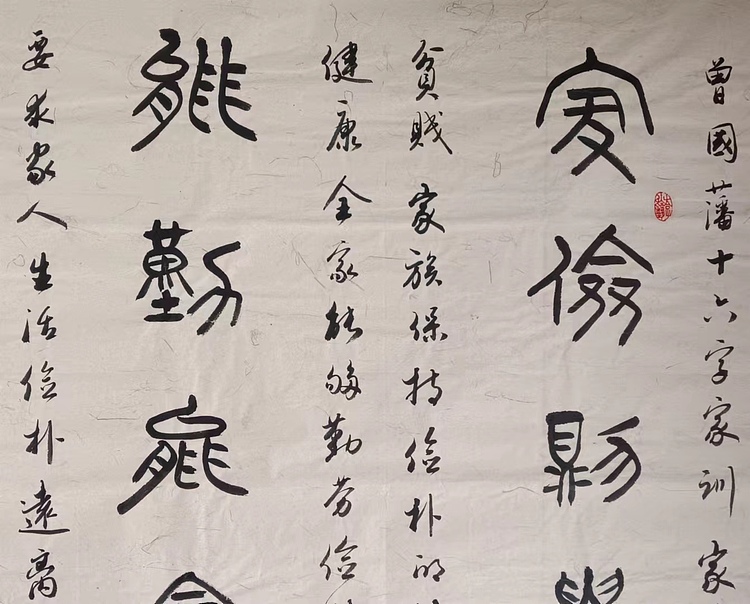 曾國藩十六字家训家
家儉則興
貧賤家族保持俭朴的
健康全家能够勤劳俭
能勤能儉
要求家人生活俭朴遠离